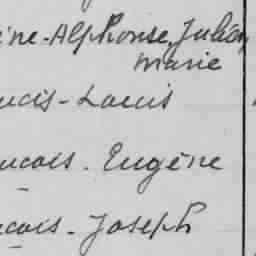 ine-Alphonse, Julien
marie
ncis-Louis
ncois. Eugène
ncois. Joseph